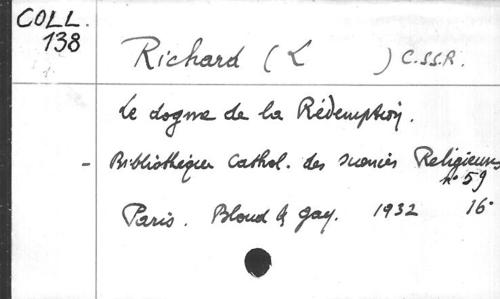 COLL.
138
Richard (L ) C.SS.R.
Le dogme de la Rédemption.
- Bibliothèque Cathol. des sciences Religieuses
n° 59
Paris. Bloud & Gay. 1932 16°